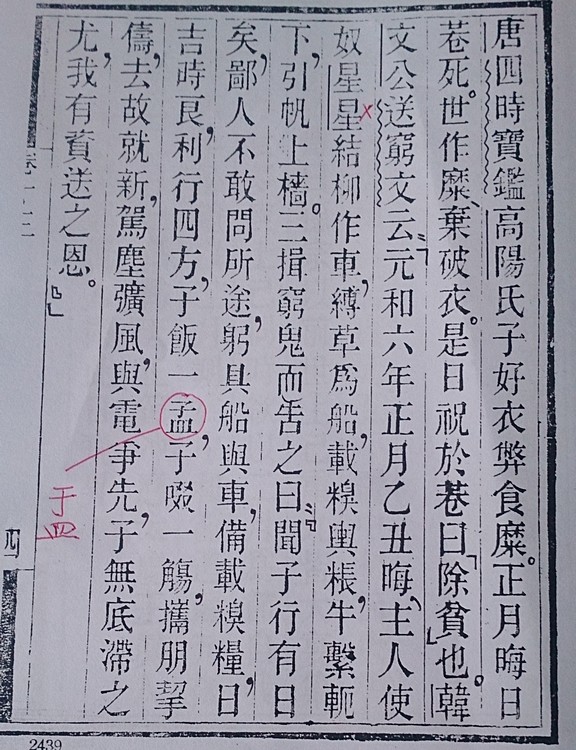 唐四時寶鑑高陽氏子好衣弊食糜。正月晦日
巷死。世作糜、棄破衣。是日祝於巷曰「除貧」也。韓
文公送窮文云:「元和六年正月乙丑晦、主人使
奴星星結柳作車,縛草爲船,載糗輿粻,牛繫軛
下,引帆上檣。三揖窮鬼而告之曰:『聞子行有日
矣,鄙人不敢問所途,躬具船與車,備載糗糧,日
吉時良,利行四方,子飯一孟,子啜一觴,攜朋挈
儔,去故就新,駕塵彍風,與電爭先,子無底滯之
尤,我有資送之恩。』」
于皿
四
2439